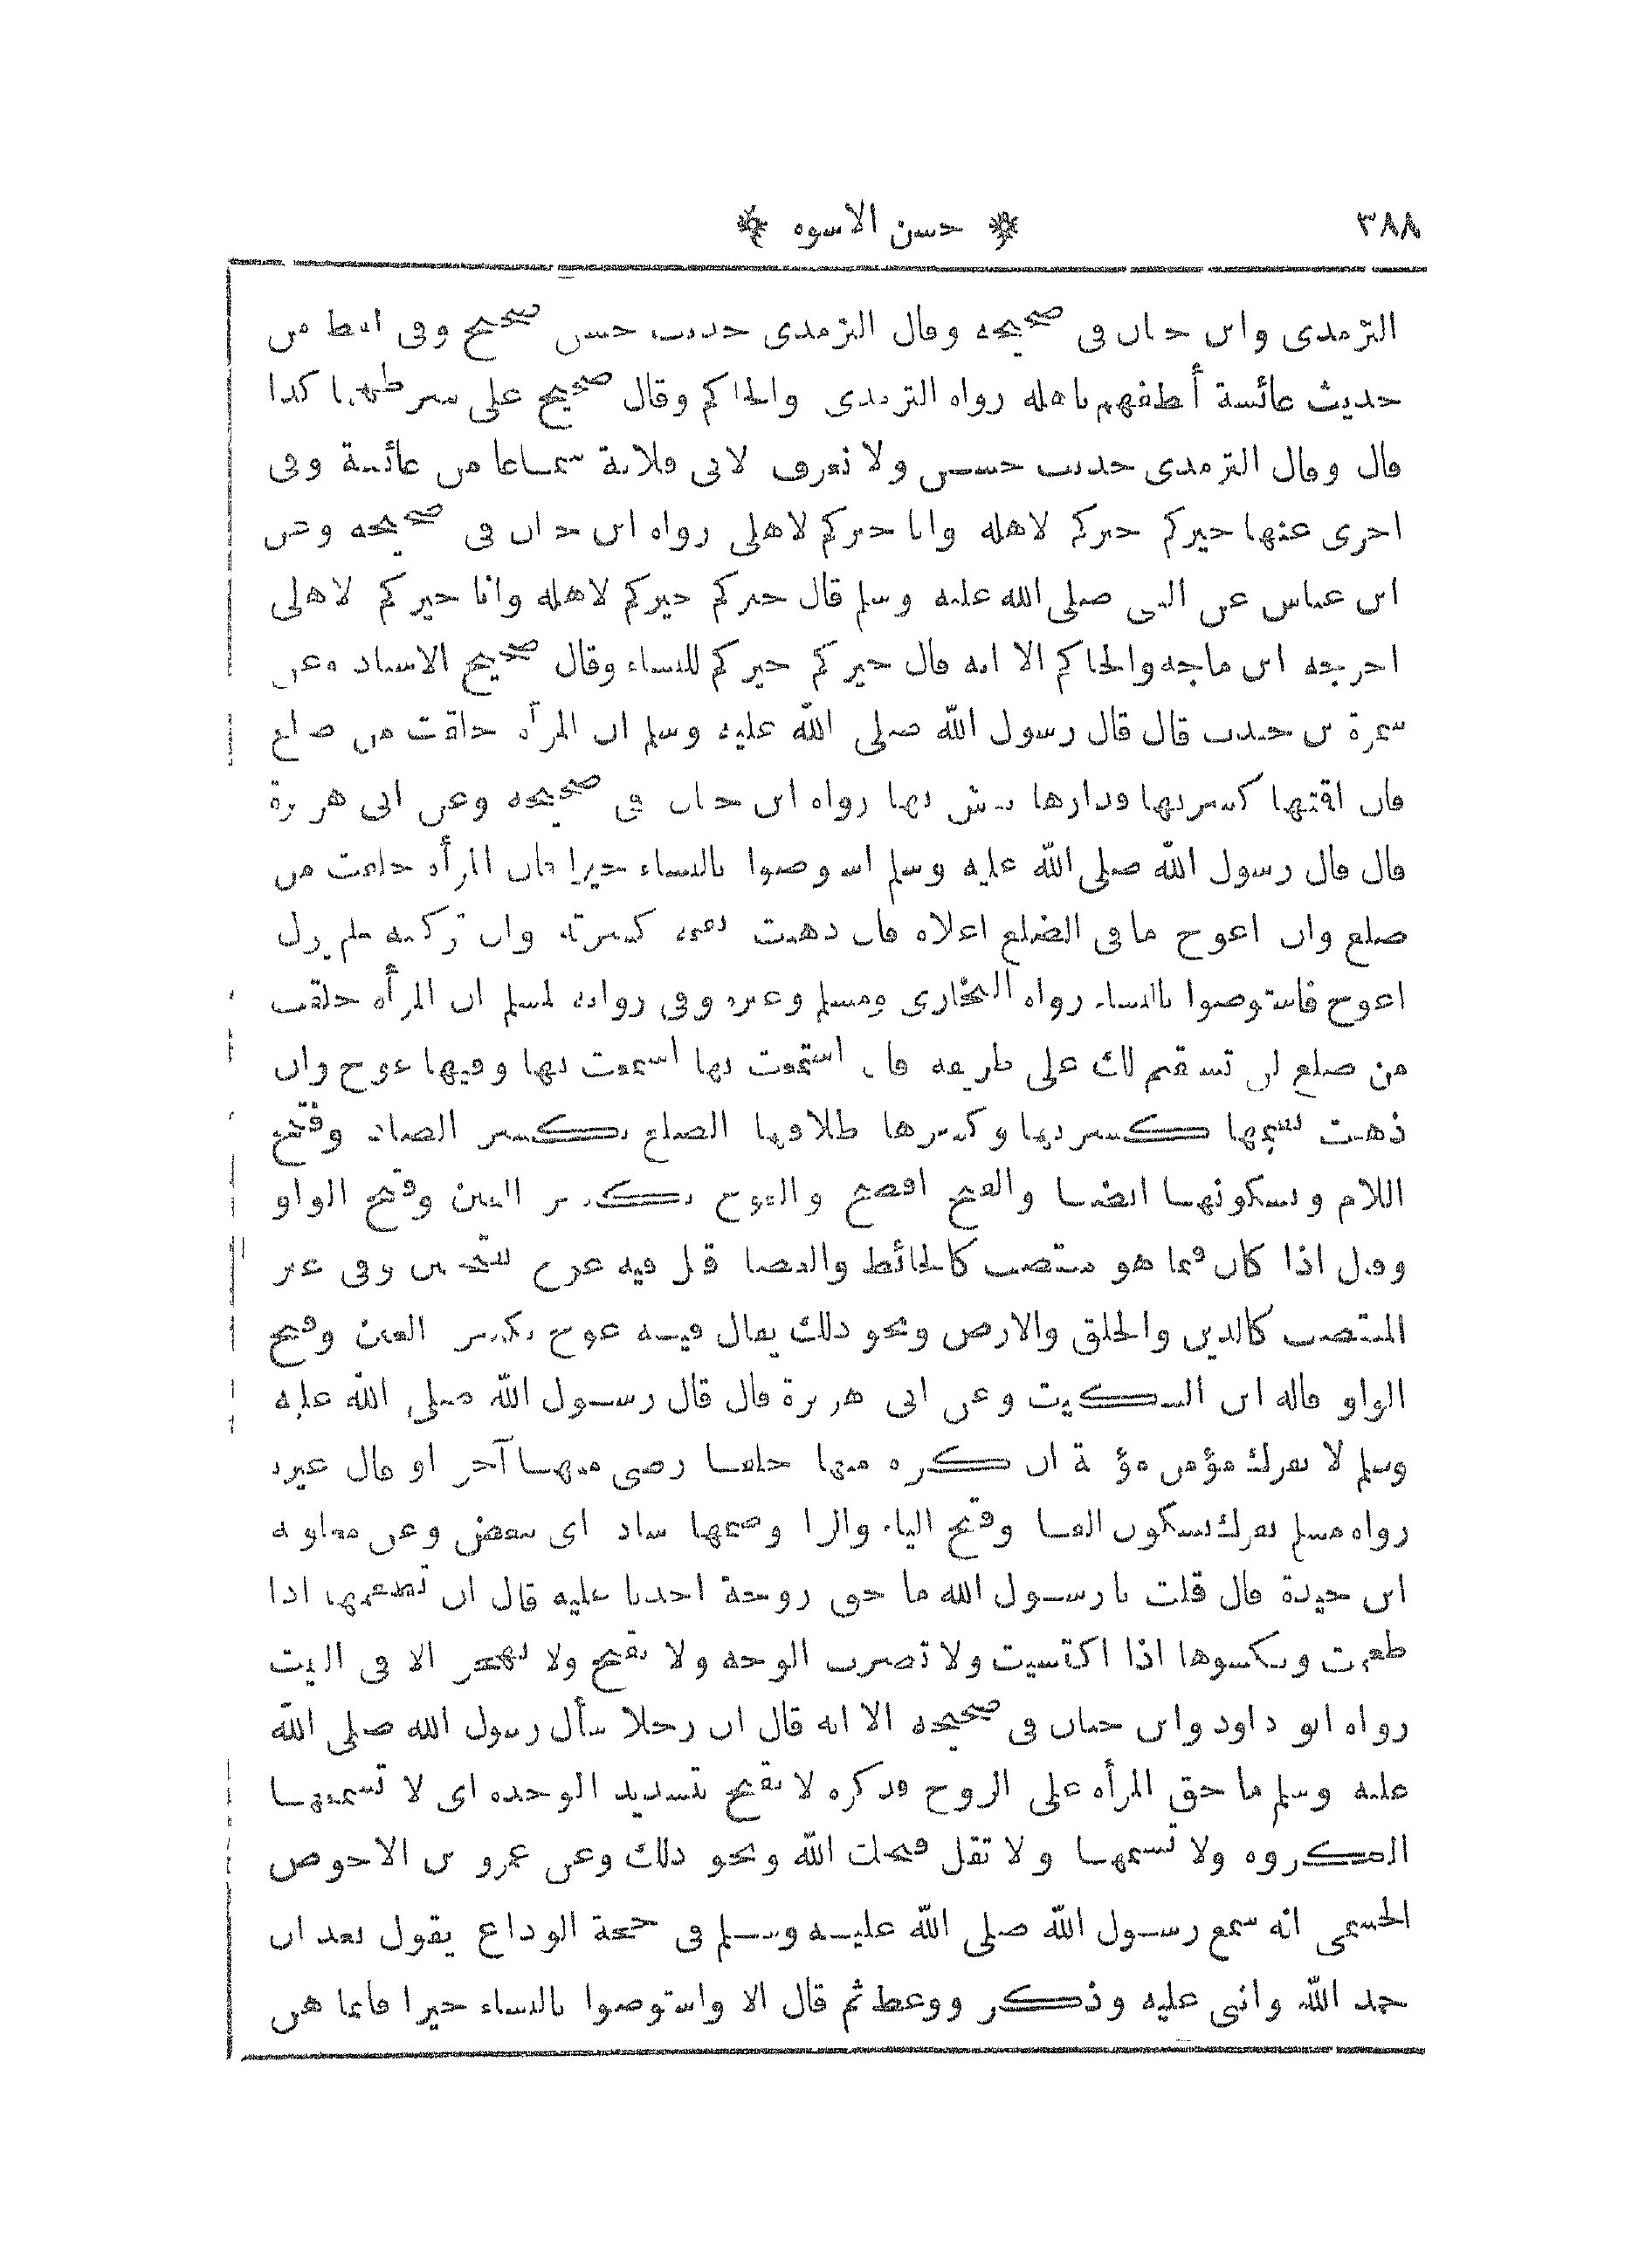 ٣٨٨ ❊ حسن الاسوه ❊
الترمذى وابن حبان فى صحيحه وقال الترمذى حديث حسن صحيح وفى لفظ من
حديث عائشة ألطفهم باهله رواه الترمذى والحاكم وقال صحيح على شرطهما كذا
قال وقال الترمذى حديث حسن ولا نعرف لابى قلابة سماعا من عائشة وفى
اخرى عنها خيركم خيركم لاهله وانا خيركم لاهلى رواه ابن حبان فى صحيحه وعن
ابن عباس عن النبى صلى الله عليه وسلم قال خيركم خيركم لاهله وانا خيركم لاهلى
اخرجه ابن ماجه والحاكم الا انه قال خيركم خيركم للنساء وقال صحيح الاسناد وعن
سمرة بن جندب قال قال رسول الله صلى الله عليه وسلم ان المرأة خلقت من ضلع
فان اقتها كسرتها فدارها تعش بها رواه ابن حبان فى صحيحه وعن ابى هريرة
قال قال رسول الله صلى الله عليه وسلم استوصوا بالنساء خيرا فان المرأة خلقت من
ضلع وان اعوج ما فى الضلع اعلاه فان ذهبت تقيمه كسرته وان تركته فلم يزل
اعوج فاستوصوا بالنساء رواه البخارى ومسلم وغيره وفى رواية لمسلم ان المرأة خلقت
من ضلع لن تستقيم لك على طريقة فان استمتعت بها استمتعت بها وفيها عوج وان
ذهبت تقيمها كسرتها وكسرها طلاقها الضلع بكسر الضاد وفتح
اللام وبسكونها ايضا والفتح افصح والعوج بكسر العين وفتح الواو
وقيل اذا كان فيما هو منتصب كالحائط والعصا قيل فيه عوج بفتحتين وفى غير
المنتصب كالدين والخلق والارض ونحو ذلك يقال فيه عوج بكسر العين وفتح
الواو قاله ابن السكيت وعن ابى هريرة قال قال رسول الله صلى الله عليه
وسلم لا يفرك مؤمن مؤمنة ان كره منها خلقا رضى منها آخر او قال غيره
رواه مسلم يفرك بسكون الفا وفتح الياء والرا وضمها شاذ اى يبغض وعن معاوية
ابن حيدة قال قلت يا رسول الله ما حق زوجة احدنا عليه قال ان تطعمها اذا
طعمت وتكسوها اذا اكتسيت ولا تضرب الوجه ولا تقبح ولا تهجر الا فى البيت
رواه ابو داود وابن حبان فى صحيحه الا انه قال ان رجلا سأل رسول الله صلى الله
عليه وسلم ما حق المرأة على الزوج فذكره لا تقبح بتشديد الموحدة اى لا تسمعها
المكروه ولا تشتمها ولا تقل قبحك الله ونحو ذلك وعن عمرو بن الاحوص
الجشمى انه سمع رسول الله صلى الله عليه وسلم فى حجة الوداع يقول بعد ان
حمد الله واثنى عليه وذكر ووعظ ثم قال الا واستوصوا بالنساء خيرا فانما هن